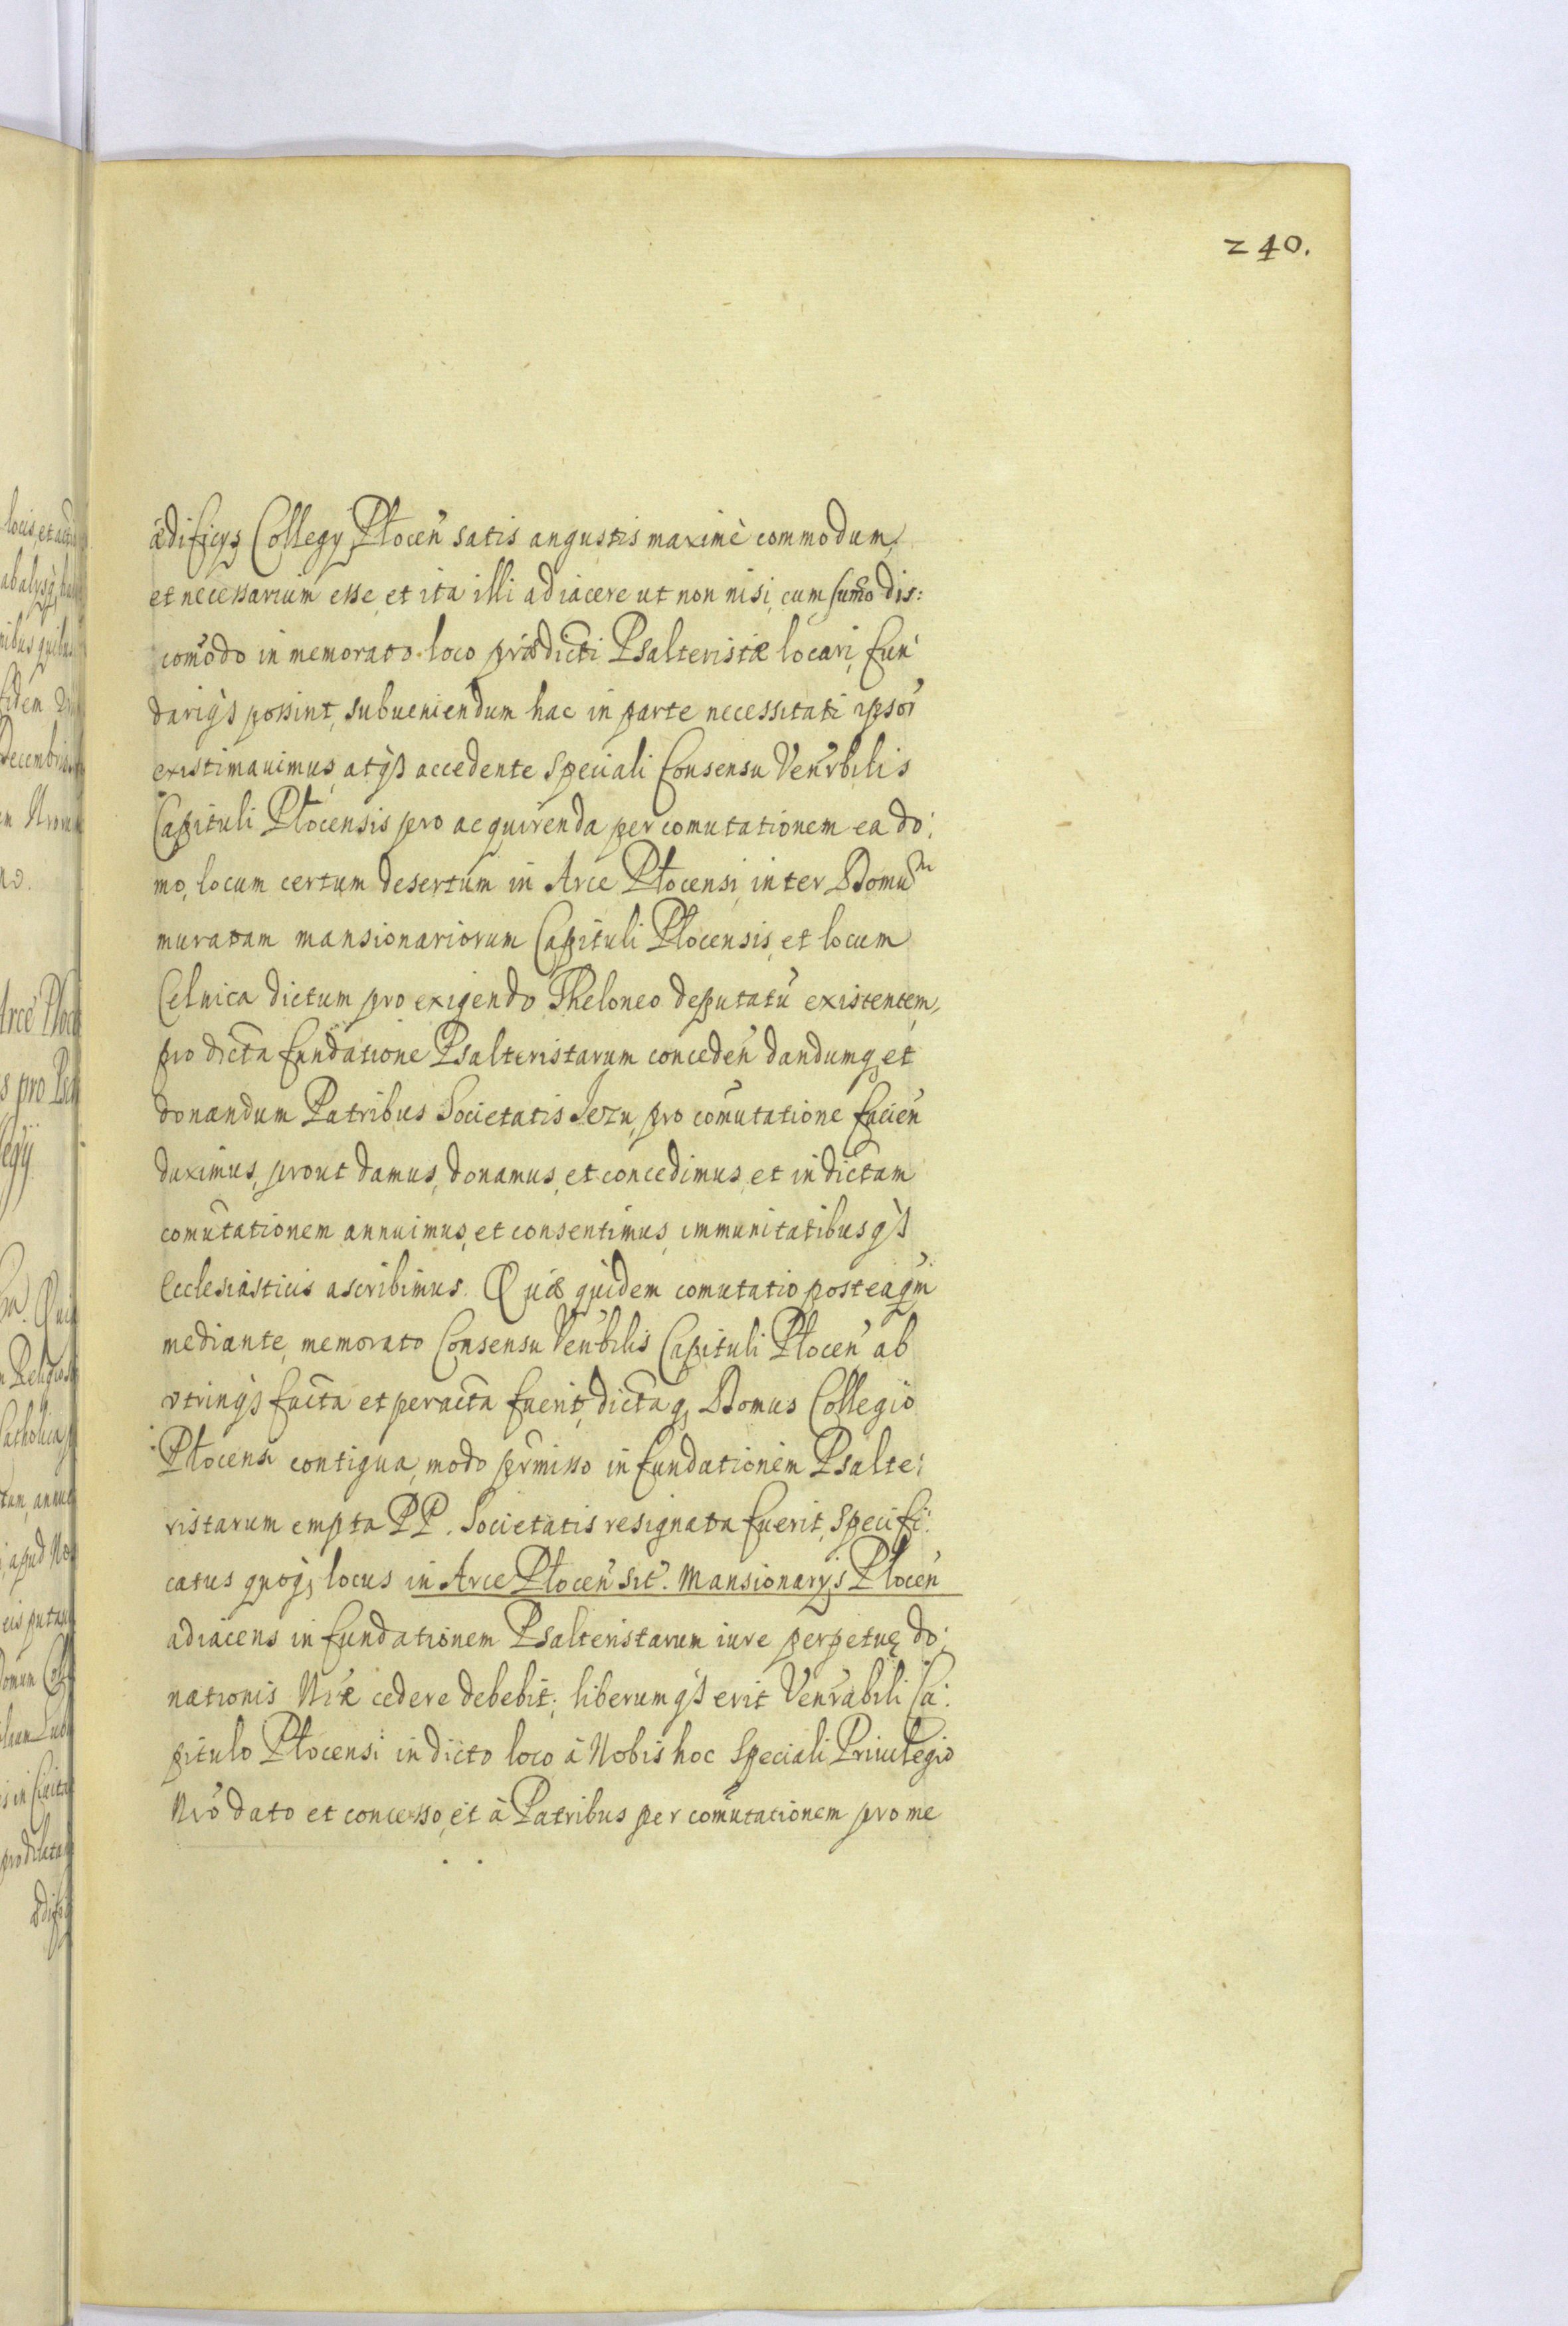 240.
ædificijs Collegij Płocen̄ satis angustis maximè commodum,
et necessarium esse, et ita illi adiacere ut non nisi, cum sum̄o dis:
com̄odo in memorato loco prædicti Psalteristæ locari, fun
dariq́ꝫ possint, subueniendum hac in parte necessitati ipsor̄
existimauimus, atq́ꝫ accedente speciali Consensu Venr̄bilis
Capituli Płocensis pro acquirenda per com̄utationem ea do:
mo, locum certum desertum in Arce Płocensi, inter Domum
muratam mansionariorum Capituli Płocensis, et locum
Celnica dictum pro exigendo Theloneo deputatū existentem,
pro dicta fundatione Psalteristarum conceden̄ dandumqꝫ et
donandum Patribus Societatis Jezu, pro com̄utatione facien̄
duximus, prout damus, donamus, et concedimus, et in dictam
com̄utationem annuimus, et consentimus, immunitatibusq́ꝫ
Ecclesiasticis ascribimus. Quæ quidem comutatio posteaqm̄
mediante, memorato Consensu Ven̄bilis Capituli Płocen̄ ab
vtrinq́ꝫ facta et peracta fuerit, dictaqꝫ Domus Collegio
Płocensi contigua, modo pr̄misso in fundationem Psalte:
ristarum empta PP. Societatis resignata fuerit, specifi:
catus quoq́ꝫ locus in Arce Płocen̄ sit. Mansionarijs Płocen̄
adiacens in fundationem Psalteristarum iure perpetuę do:
nationis Nr̄æ cedere debebit; liberumq́ꝫ erit Venr̄abili Ca:
pitulo Płocensi in dicto loco à Nobis hoc speciali Priuilegio
Nr̄o dato et concesso, et à Patribus per com̄utationem pro me